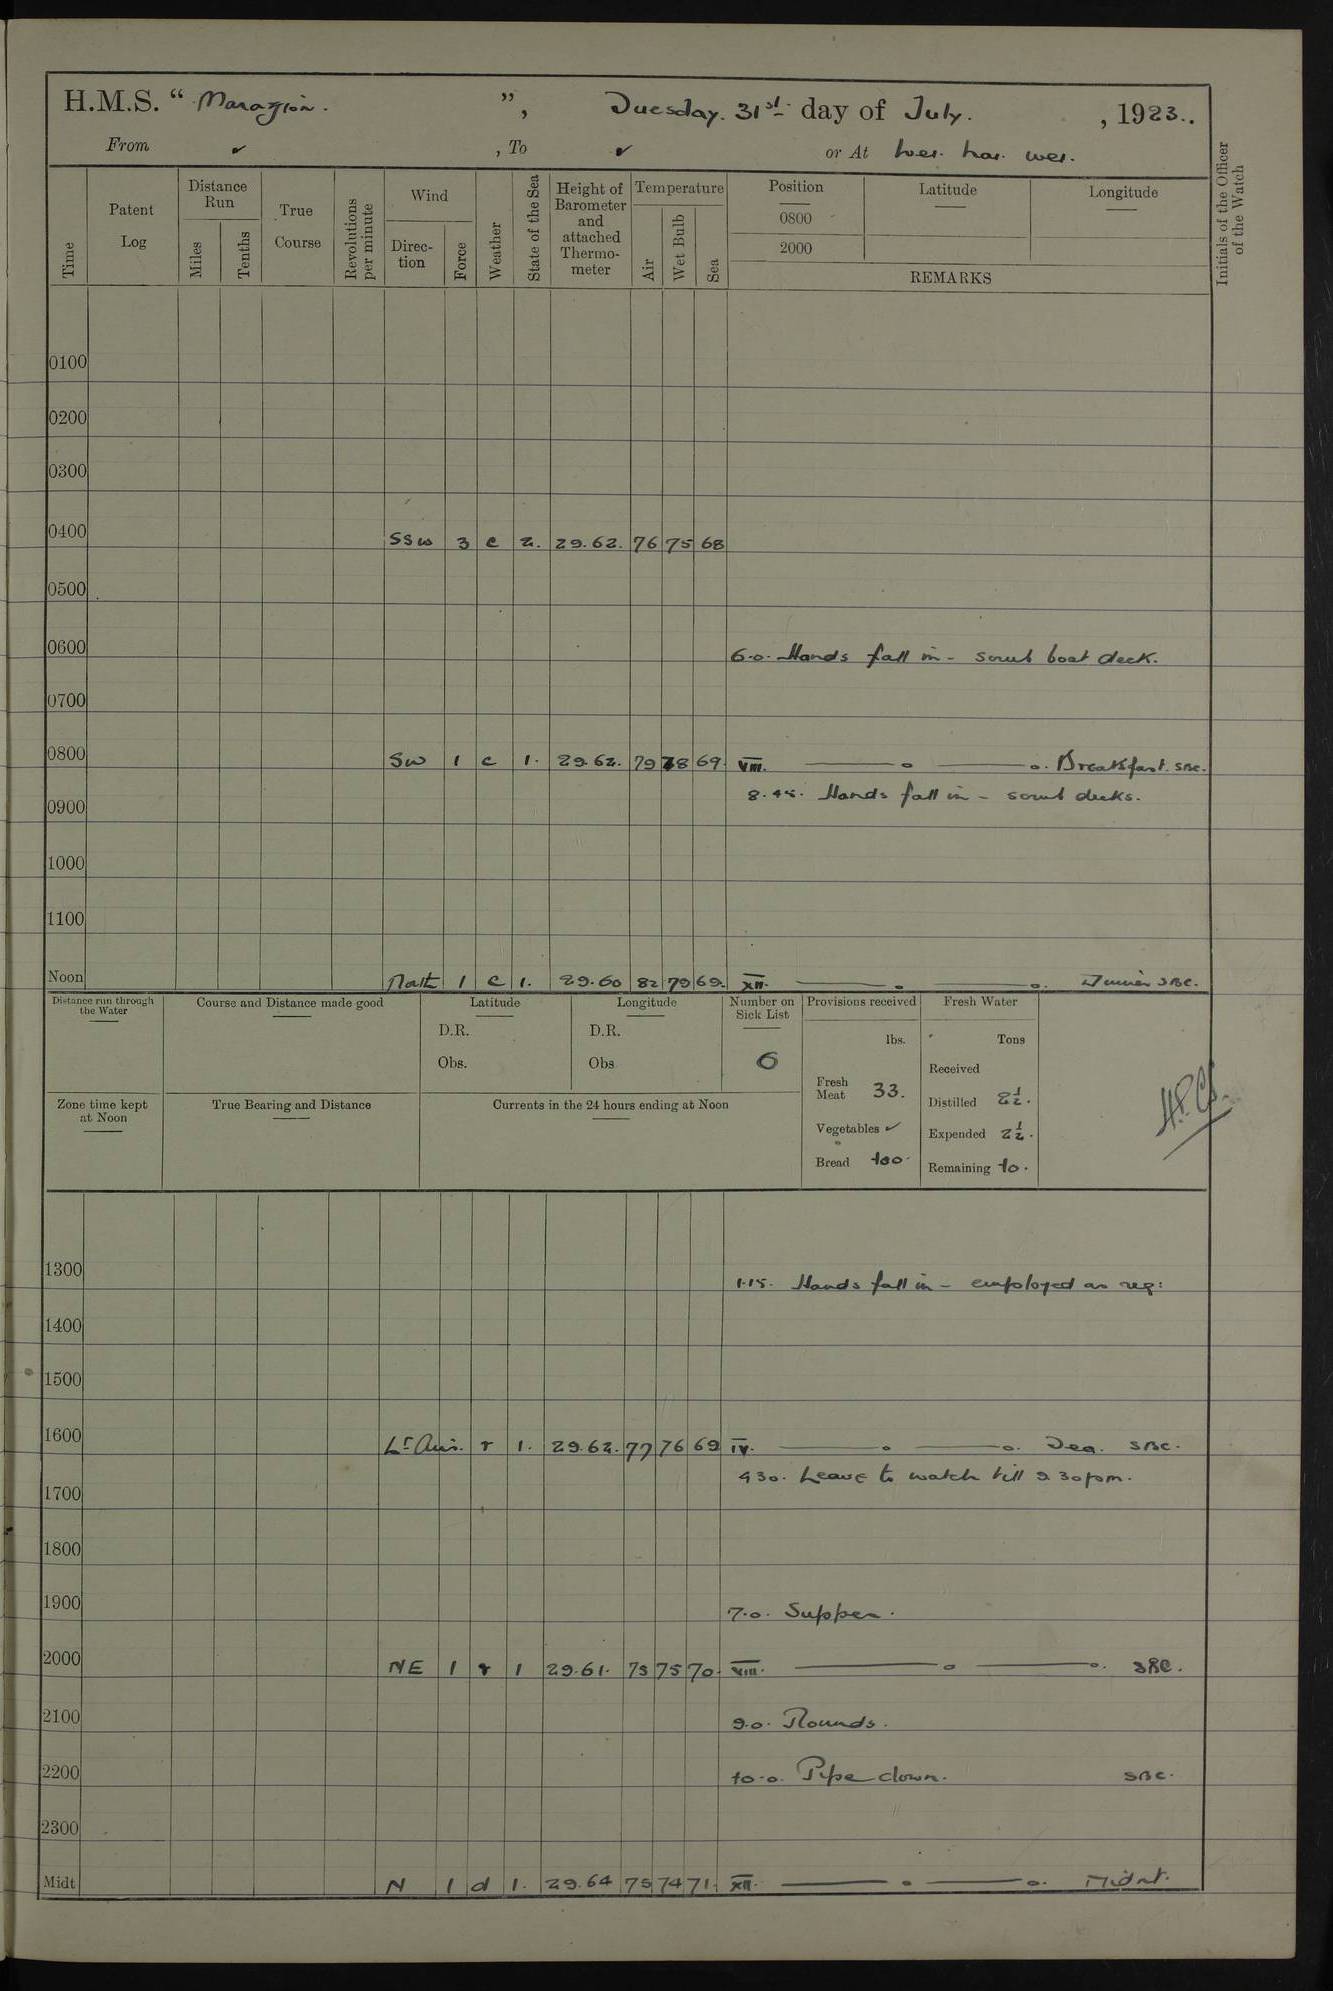 H.M.S. “ Marazion. ”, Tuesday. 31st day of July. , 1923.
From ✓ , To ✓ or At Wei. hai. wei.
Time
Patent Log
Distance Run
Miles
Tenths
True Course
Revolutions per minute
Wind
Direc-tion
Force
Weather
State of the Sea
Height of Barometer and attached Thermo-meter
Temperature
Air
Wet Bulb
Sea
Position
0800
2000
Latitude
Longitude
REMARKS
Initials of the Officer of the Watch
0100
0200
0300
0400 SSW 3 c 2. 29.62. 76 75 68
0500
0600 6.0. Hands fall in - scrub boat deck.
0700
0800 SW 1 c 1. 29.62. 79 78 69. VIII. Breakfast. SBC.
8.45. Hands fall in - scrub decks.
0900
1000
1100
Noon North 1 c 1. 29.60 82 79 69. XII. Dinner SBC.
Distance run through the Water
Course and Distance made good
Latitude
D.R.
Obs.
Longitude
D.R.
Obs
Number on Sick List
6
Provisions received
lbs.
Fresh Meat 33.
Vegetables ✓
Bread 100.
Fresh Water
Tons
Received
Distilled 2½.
Expended 2½.
Remaining 10.
Zone time kept at Noon
True Bearing and Distance
Currents in the 24 hours ending at Noon
1300 1.15. Hands fall in - employed as req:
1400
1500
1600 Lt Airs. r 1. 29.62. 77 76 69 IV. Tea. SBC.
4 30. Leave to watch till 9 30 pm.
1700
1800
1900 7.0. Supper.
2000 NE 1 r 1 29.61. 75 75 70. VIII. SBC.
2100 9.0. Rounds.
2200 10.0. Pipe down. SBC.
2300
Midt N 1 d 1. 29.64 75 74 71. XII. Midnt.